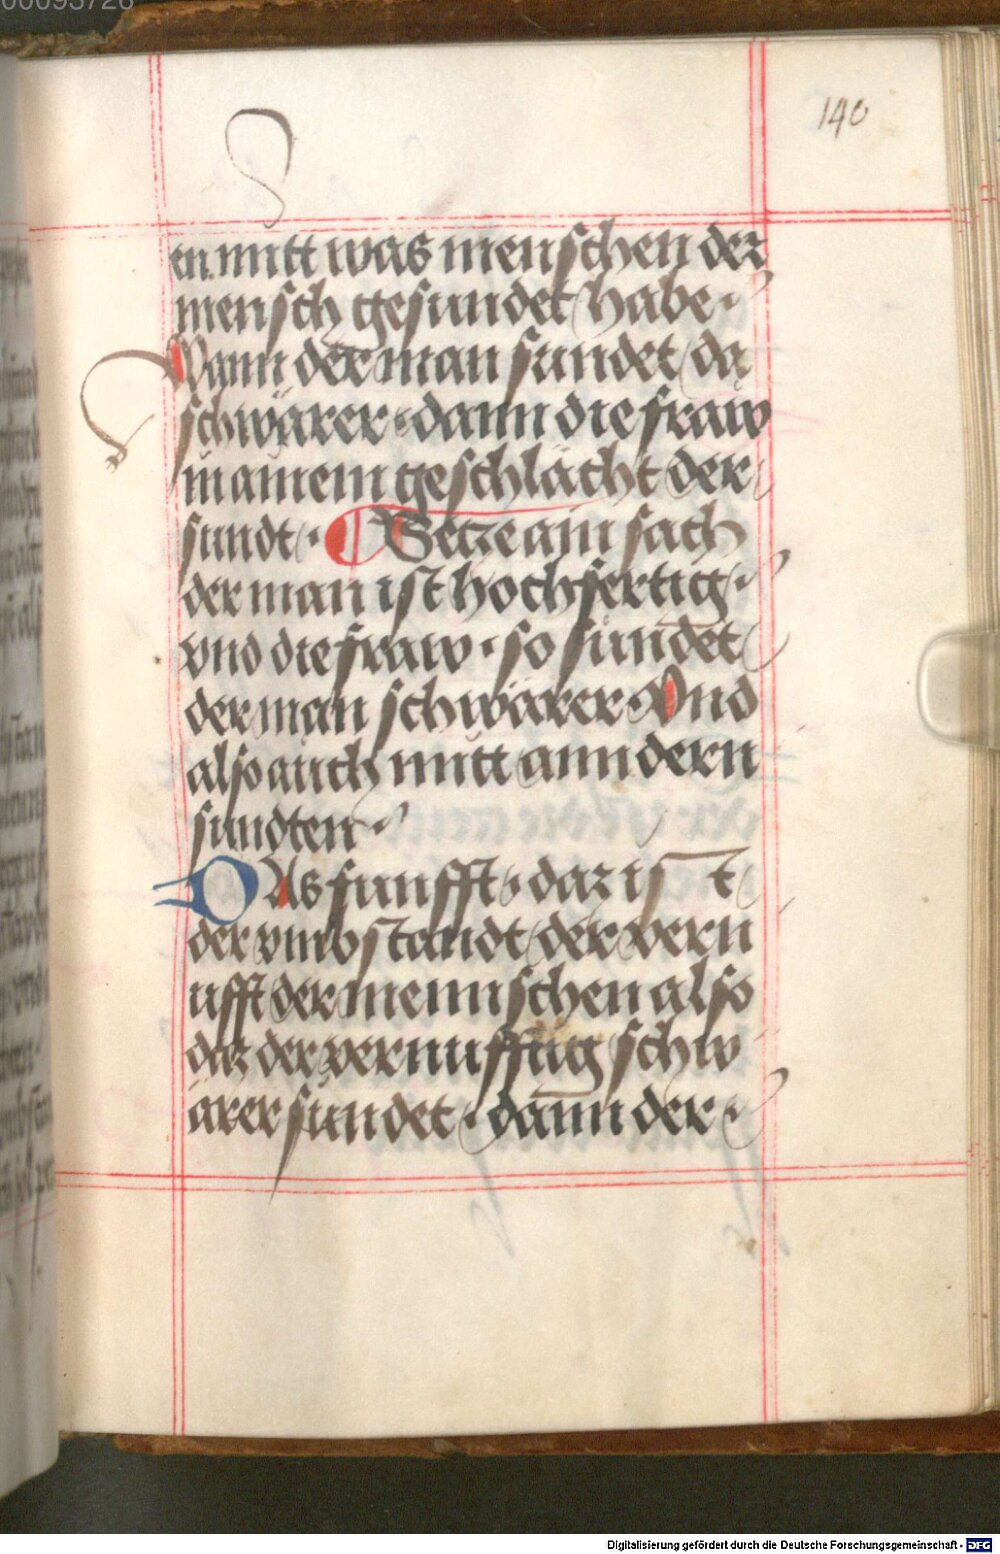 00093728
140
en. mitt was menschen der
mensch gesundet habe.
Wann der man sundet da
schwärer. dann die fraw
in ainem geschlächt der
sundt. Setze ain sach
der man ist hochfertig.
vnd die fraw. so sundet
der man schwärer. Vnd
also auch mitt anndern
sundten.
DAs funfft. daz ist
der vmbstandt der vern
ufft der mennschen also
daz der vernuftig schw
ärer sundet. dann der.
Digitalisierung gefördert durch die Deutsche Forschungsgemeinschaft - DFG